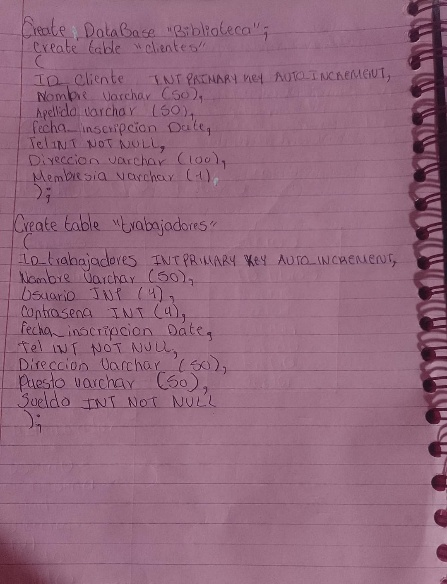 Create, DataBase "Biblioteca";
Create table "clientes"
(
ID_Cliente INT PRIMARY KEY AUTO_INCREMENT,
Nombre Varchar (50),
Apellido varchar (50),
Fecha_inscripcion Date,
Tel INT NOT NULL,
Direccion varchar (100),
Membresia varchar (1),
);
Create table "trabajadores"
(
ID_trabajadores INT PRIMARY KEY AUTO_INCREMENT,
Nombre Varchar (50),
Usuario INT (4),
Contrasena INT (4),
Fecha_inscripcion Date,
Tel INT NOT NULL,
Direccion Varchar (50),
Puesto varchar (50),
Sueldo INT NOT NULL
);